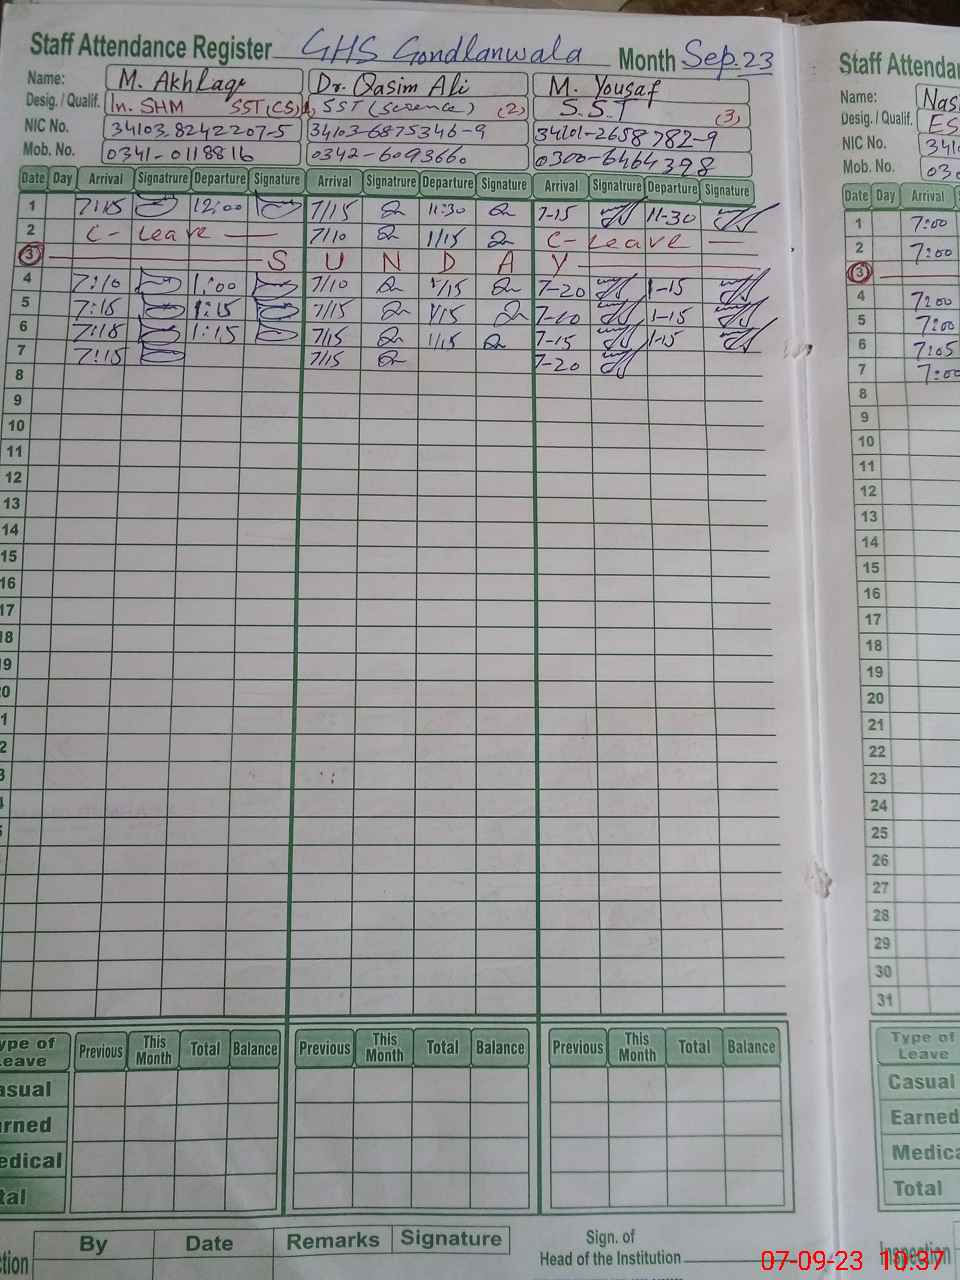 Staff Attendance Register GHS Gondlanwala Month Sep.23
Name: M. Akhlaqe Dr. Qasim Ali M. Yousaf
Desig. / Qualif. In. SHM SST(CS) SST (science) (2) S.S.T (3)
NIC No. 34103.8242207-5 34103-6875346-9 34101-2658782-9
Mob. No. 0341-0118816 0342-6093660 0300-6464398
Date Day Arrival Signatrure Departure Signature Arrival Signatrure Departure Signature Arrival Signatrure Departure Signature
1 7:15 12:00 7/15 11:30 7-15 11-30
2 C- Leave 7/10 1/15 C- Leave
3 S U N D A Y
4 7:10 1:00 7/10 1/15 7-20 1-15
5 7:15 1:15 7/15 1/15 7-10 1-15
6 7:18 1:15 7/15 1/15 7-15 1-15
7 7:15 7/15 7-20
8
9
10
11
12
13
14
15
16
17
18
19
20
21
22
23
24
25
26
27
28
29
30
31
Type of Leave Previous This Month Total Balance Previous This Month Total Balance Previous This Month Total Balance
Casual
Earned
Medical
Total
By Date Remarks Signature
Sign. of
Head of the Institution
Staff Attenda
Name: Nas
Desig. / Qualif. ES
NIC No. 341
Mob. No. 030
Date Day Arrival
1 7:00
2 7:00
3
4 7:00
5 7:00
6 7:05
7 7:00
8
9
10
11
12
13
14
15
16
17
18
19
20
21
22
23
24
25
26
27
28
29
30
31
Type of
Leave
Casual
Earned
Medica
Total
Inspection
07-09-23 10:37